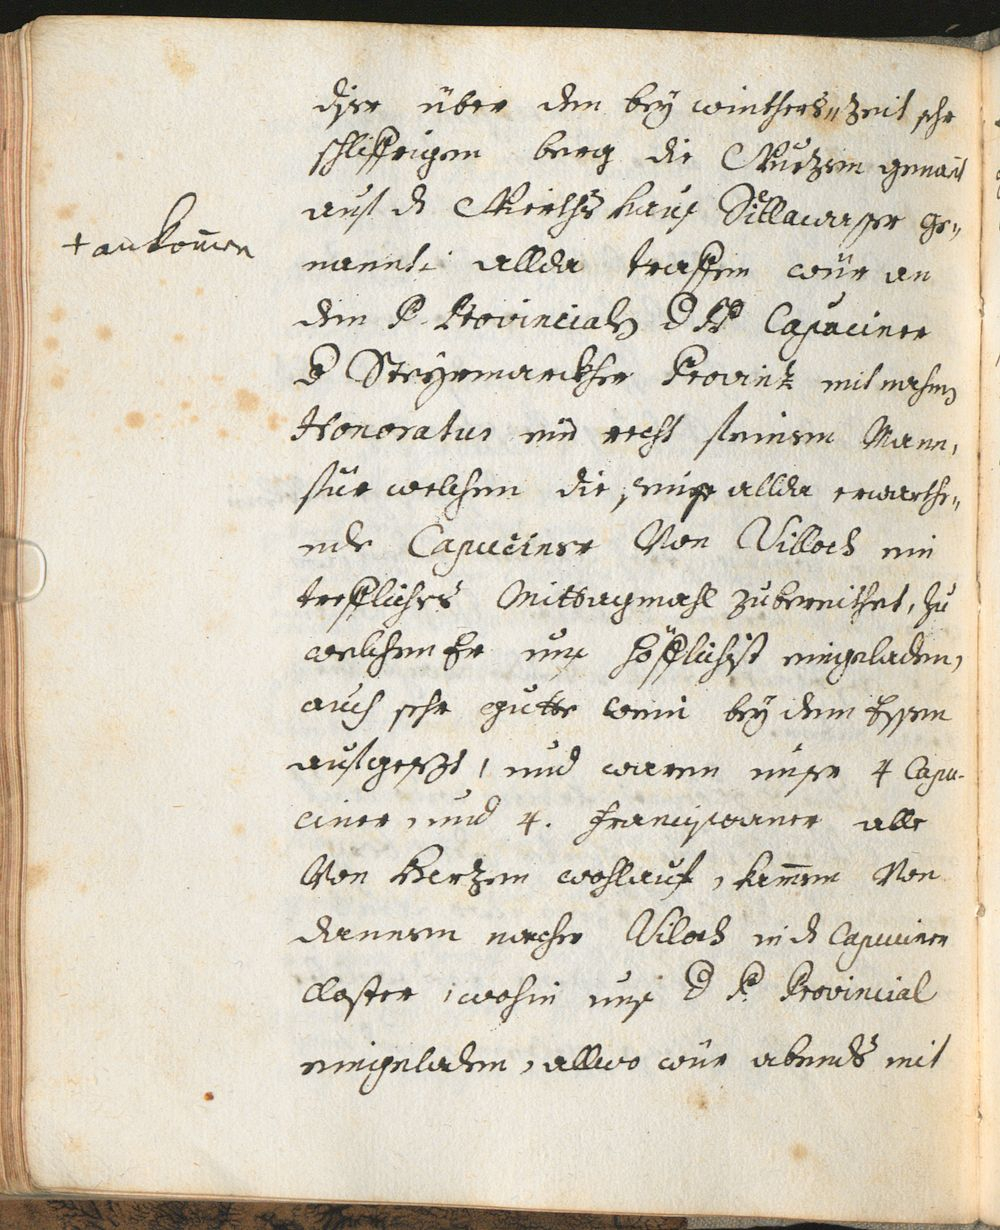 diser über den bey winthers„zeit sehr
schlipfrigen berg die Krietzen genañt
auf d Wierthshaus Sillawasser ge„
+ ankomen
nannt: allda traffen wür an
den P. Provincialn d PP Capuciner
d Steyrmarckher Provintz mit nahmen
Honoratus ein recht feinem Mann,
für welchen die seinige allda erwarthe„
nde Capuciner von Villach ein
treffliches Mittagmahl zubereithet, zu
welchem Er uns höfflichist eingeladen,
auch sehr gutte wein bey dem Essen
aufgesezt, und waren unser 4 Capu-
ciner, und 4. Franciscaner alle
Von Hertzen wohlauf, kamen Von
dannen nacher Vilach in d Capuciner
Closter, wohin uns d P. Provincial
eingeladen, allwo wür abends mit